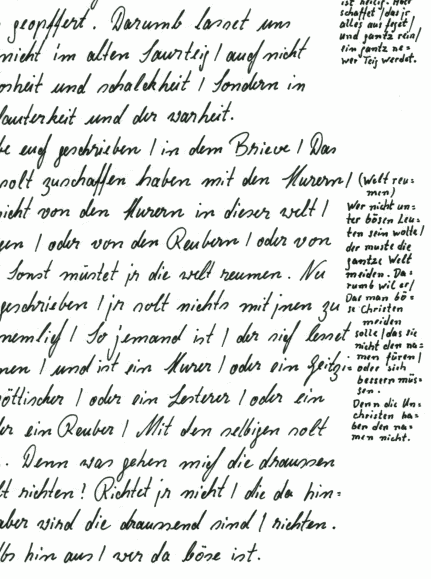 geopffert. Darumb lasset uns
nicht im alten Saurteig / auch nicht
osheit und schalckheit / Sondern in
lauterkeit und der warheit.
be euch geschrieben / in dem Brieve / Das
solt zuschaffen haben mit den Hurern /
icht von den Hurern in dieser welt /
gen / oder von den Reubern / oder von
Sonst müstet jr die welt reumen. Nu
geschrieben / jr solt nichts mit jnen zu
nemlich / So jemand ist / der sich lesset
nen / und ist ein Hurer / oder ein Geitzi=
öttischer / oder ein Lesterer / oder ein
er ein Reuber / Mit den selbigen solt
. Denn was gehen mich die draussen
lt richten? Richtet jr nicht / die da hin=
aber wird die draussend sind / richten.
lbs hin aus / wer da böse ist.
ist heilig. Aber
schaffet / das jr
alles aus feget /
und gantz rein /
ein gantz ne=
wer Teig werdet.
(Welt reu=
men)
Wer nicht un=
ter bösen Leu=
ten sein wolte /
der muste die
gantze Welt
meiden. Da=
rumb wil er /
Das man bö=
se Christen
meiden
solle / das sie
nicht den na=
men füren /
oder sich
bessern müs=
sen.
Denn die Un=
christen ha=
ben den na=
men nicht.